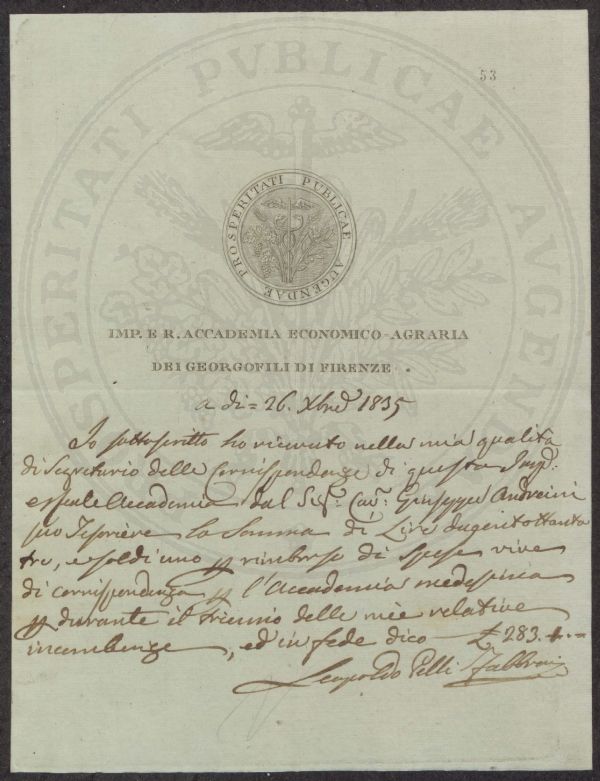 53
PROSPERITATI PUBLICAE AUGENDAE
IMP. E R. ACCADEMIA ECONOMICO-AGRARIA
DEI GEORGOFILI DI FIRENZE
a di = 26. Xbre 1835
Io sottoscritto ho ricevuto nella mia qualità
di Segretario delle Corrispondenze di questa Imp.
e reale Accademia dal Sig. Cav. Giuseppe Andreini
suo Tesoriere la Somma di Lire dugentottanta
tre, e soldi uno p rimborso di Spese vive
di corrispondenza p l'Accademia medesima
p durante il triennio delle mie relative
incumbenze, ed in fede dico £ 283. 1. -
Leopoldo Pelli Fabbroni
PROSPERITATI PVBLICAE AVGENDAE